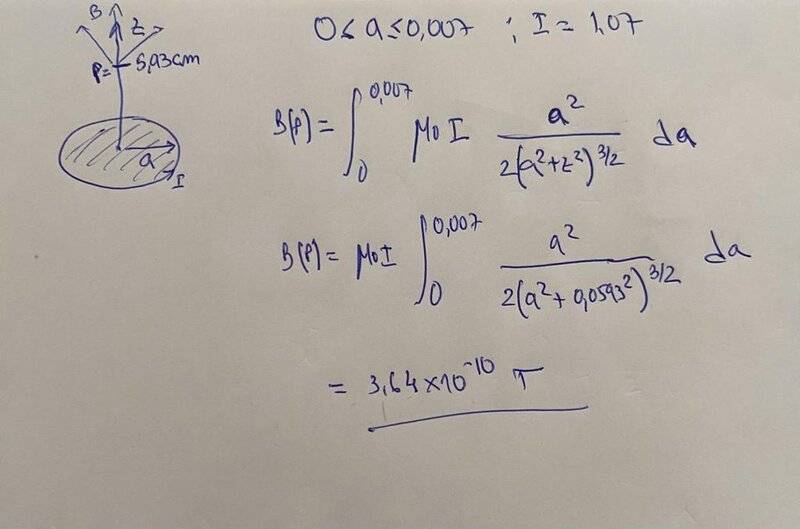 B
z
P= 5,93cm
a
I
0 ≤ a ≤ 0,007 ; I = 1,07
B(P) = ∫₀^0,007 μ₀ I a² / 2(a²+z²)^3/2 da
B(P) = μ₀I ∫₀^0,007 a² / 2(a²+0,0593²)^3/2 da
= 3,64×10⁻¹⁰ T